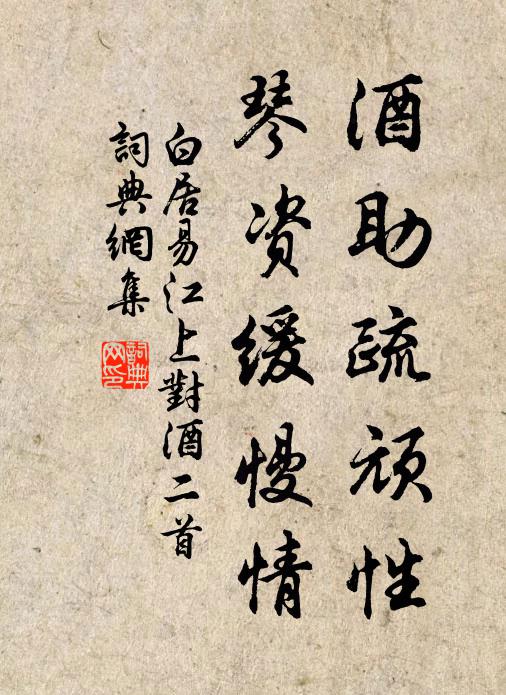 酒助疏頑性
琴資緩慢情
白居易江上對酒二首
詞典網集
詞典網印